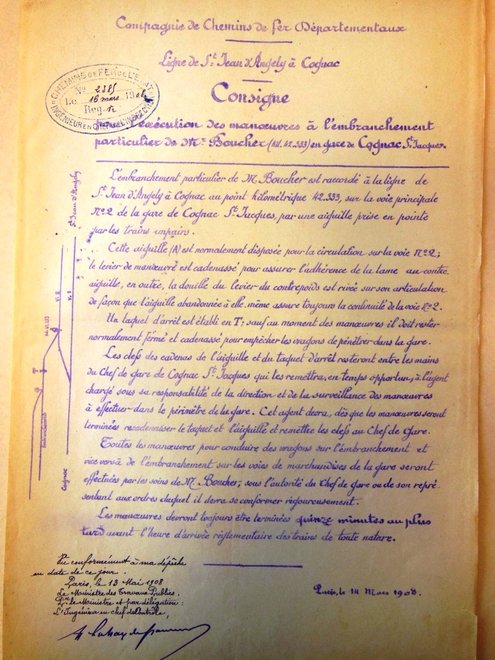 Compagnie de Chemins de Fer Départementaux
Ligne de St Jean d'Angely à Cognac
Consigne
CHEMINS DE FER DE L'ETAT
No 2385
Le 16 mars
Reg.
pour l'exécution des manœuvres à l'embranchement
particulier de Mr Boucher (kil. 42.333) en gare de Cognac St Jacques.
L'embranchement particulier de M. Boucher est raccordé à la ligne de
St Jean d'Angely à Cognac au point kilométrique 42.333, sur la voie principale
No 2 de la gare de Cognac St Jacques, par une aiguille prise en pointe
par les trains impairs.
Cette aiguille (A) est normalement disposée pour la circulation sur la voie No 2;
le levier de manœuvre est cadenassé pour assurer l'adhérence de la lame au contre
aiguille, en outre, la douille du levier du contrepoids est rivée sur son articulation
de façon que l'aiguille abandonnée à elle même assure toujours la continuité de la voie No 2.
Un taquet d'arrêt est établi en T; sauf au moment des manœuvres il doit rester
normalement fermé et cadenassé pour empêcher les wagons de pénétrer dans la gare.
Les clefs des cadenas de l'aiguille et du taquet d'arrêt resteront entre les mains
du Chef de gare de Cognac St Jacques qui les remettra, en temps opportun, à l'agent
chargé sous sa responsabilité de la direction et de la surveillance des manœuvres
à effectuer dans le périmètre de la gare. Cet agent devra, dès que les manœuvres seront
terminées recadenasser le taquet et l'aiguille et remettre les clefs au Chef de Gare.
Toutes les manœuvres pour conduire des wagons sur l'embranchement et
vice versâ de l'embranchement sur les voies de marchandises de la gare seront
effectuées par les soins de M. Boucher, sous l'autorité du Chef de gare ou de son repré
sentant aux ordres duquel il devra se conformer rigoureusement.
Les manœuvres devront toujours être terminées quinze minutes au plus
tard avant l'heure d'arrivée réglementaire des trains de toute nature.
St Jean d'Angely
V. 2
Cognac
Vu conformément à ma dépêche
en date de ce jour.
Paris, le 13 Mai 1908
Le Ministre des Travaux Publics,
Pr le Ministre et par délégation:
L'Ingénieur en chef du Contrôle,
Paris, le 14 Mars 1908.